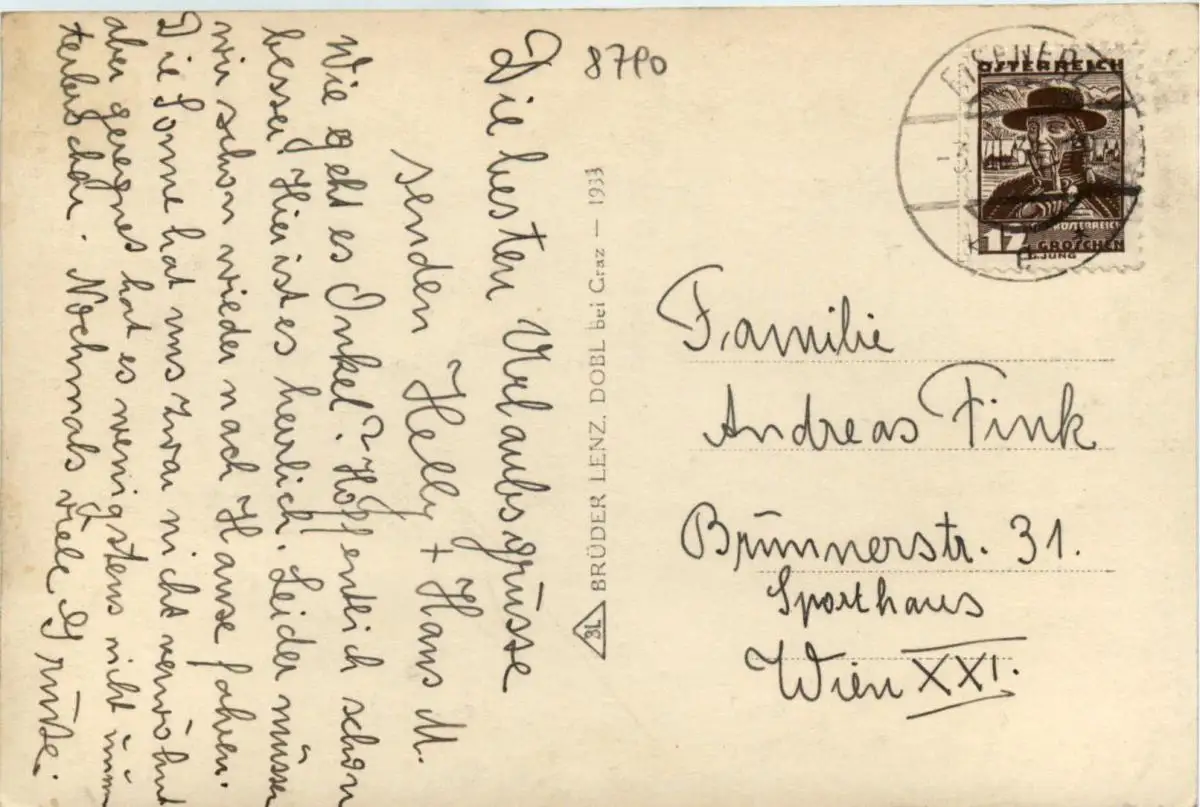 Die besten Urlaubsgrüsse
senden Helly + Hans M.
Wie geht es Onkel? Hoffentlich schon
besser. Hier ist es herrlich. Leider müssen
wir schon wieder nach Hause fahren.
Die Sonne hat uns zwar nicht verwöhnt
aber geregnet hat es wenigstens nicht
Nochmals viele Grüße.
8790
BRÜDER LENZ, DOBL bei Graz — 1933
BL
ÖSTERREICH
12
ÖSTERREICH
GROSCHEN
G.JUNG
Familie
Andreas Fink
Brünnerstr. 31.
Sporthaus
Wien XXI.